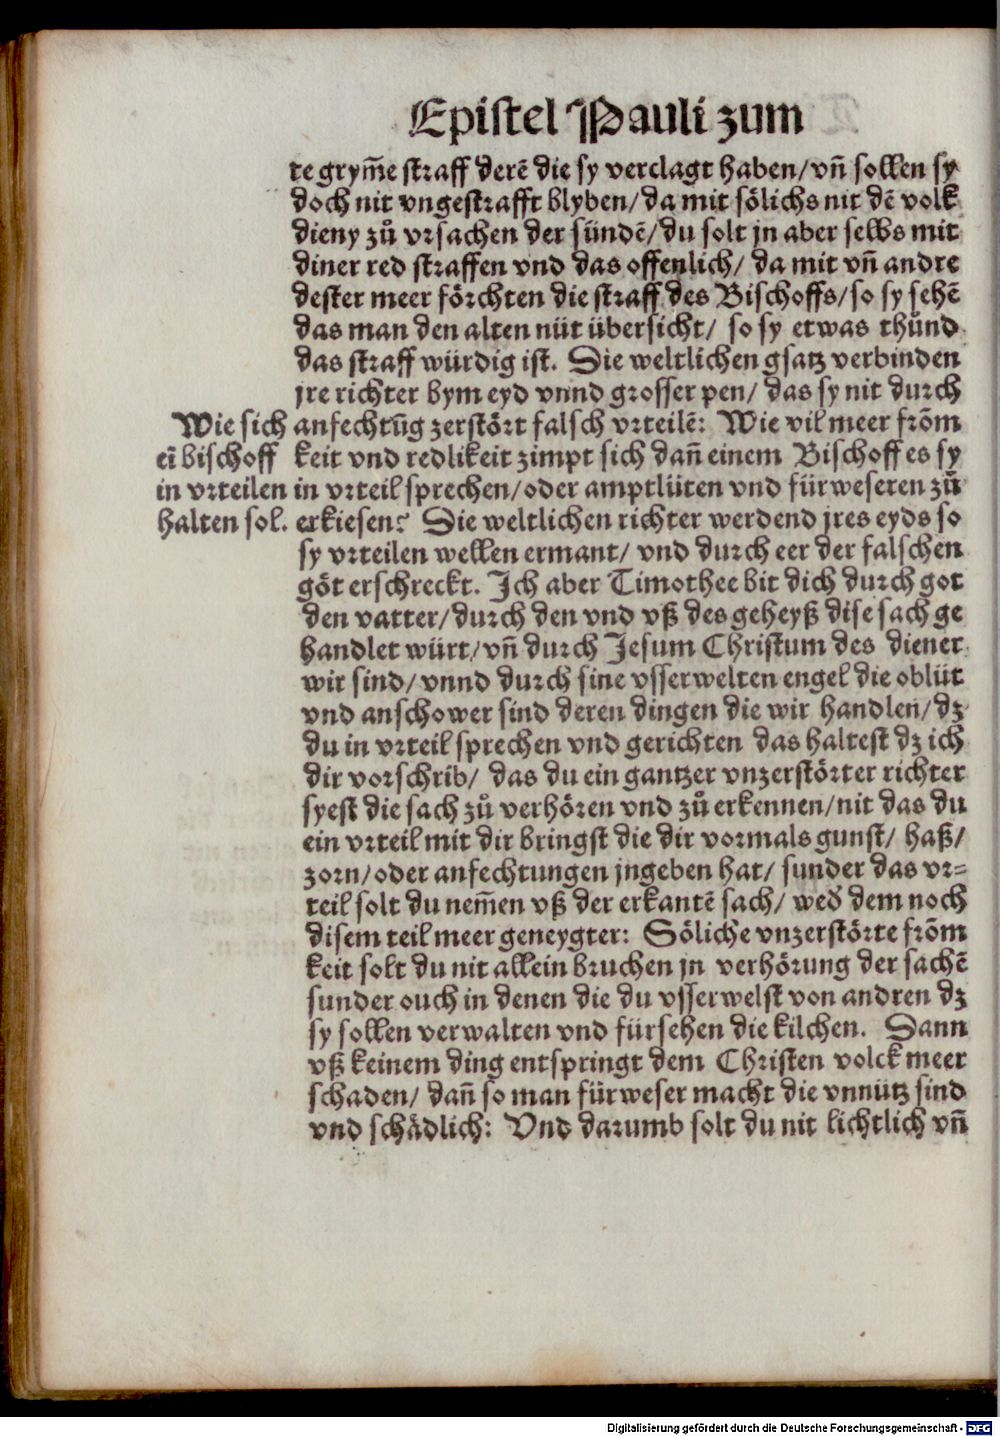 Epistel Pauli zum
te grym̃e straff derẽ die sy verclagt haben/ vñ sollen sy
doch nit vngestrafft blyben/ da mit sölichs nit dẽ volk
dieny zů vrsachen der sündẽ/ du solt jn aber selbs mit
diner red straffen vnd das offenlich/ da mit vñ andre
dester meer förchten die straff des Bischoffs/ so sy sehẽ
das man den alten nüt übersicht/ so sy etwas thůnd
das straff würdig ist. Die weltlichen gsatz verbinden
jre richter bym eyd vnnd grosser pen/ das sy nit durch
anfechtũg zerstört falsch vrteilẽ: Wie vil meer frõm
keit vnd redlikeit zimpt sich dañ einem Bischoff es sy
in vrteil sprechen/ oder amptlüten vnd fürweseren zů
erkiesen? Die weltlichen richter werdend jres eyds so
sy vrteilen wellen ermant/ vnd durch eer der falschen
göt erschreckt. Ich aber Timothee bit dich durch got
den vatter/ durch den vnd vß des geheyß dise sach ge
handlet würt/ vñ durch Jesum Christum des diener
wir sind/ vnnd durch sine vsserwelten engel die oblüt
vnd anschower sind deren dingen die wir handlen/ dz
du in vrteil sprechen vnd gerichten das haltest dz ich
dir vorschrib/ das du ein gantzer vnzerstörter richter
syest die sach zů verhören vnd zů erkennen/ nit das du
ein vrteil mit dir bringst die dir vormals gunst/ haß/
zorn/ oder anfechtungen jngeben hat/ sunder das vr-
teil solt du nem̃en vß der erkantẽ sach/ wed' dem noch
disem teil meer geneygter: Söliche vnzerstörte frõm
keit solt du nit allein bruchen jn verhörung der sachẽ
sunder ouch in denen die du vsserwelst von andren dz
sy sollen verwalten vnd fürsehen die kilchen. Dann
vß keinem ding entspringt dem Christen volck meer
schaden/ dañ so man fürweser macht die vnnütz sind
vnd schädlich: Vnd darumb solt du nit lichtlich vñ
Wie sich
eĩ bischoff
in vrteilen
halten sol.
Digitalisierung gefördert durch die Deutsche Forschungsgemeinschaft - DFG